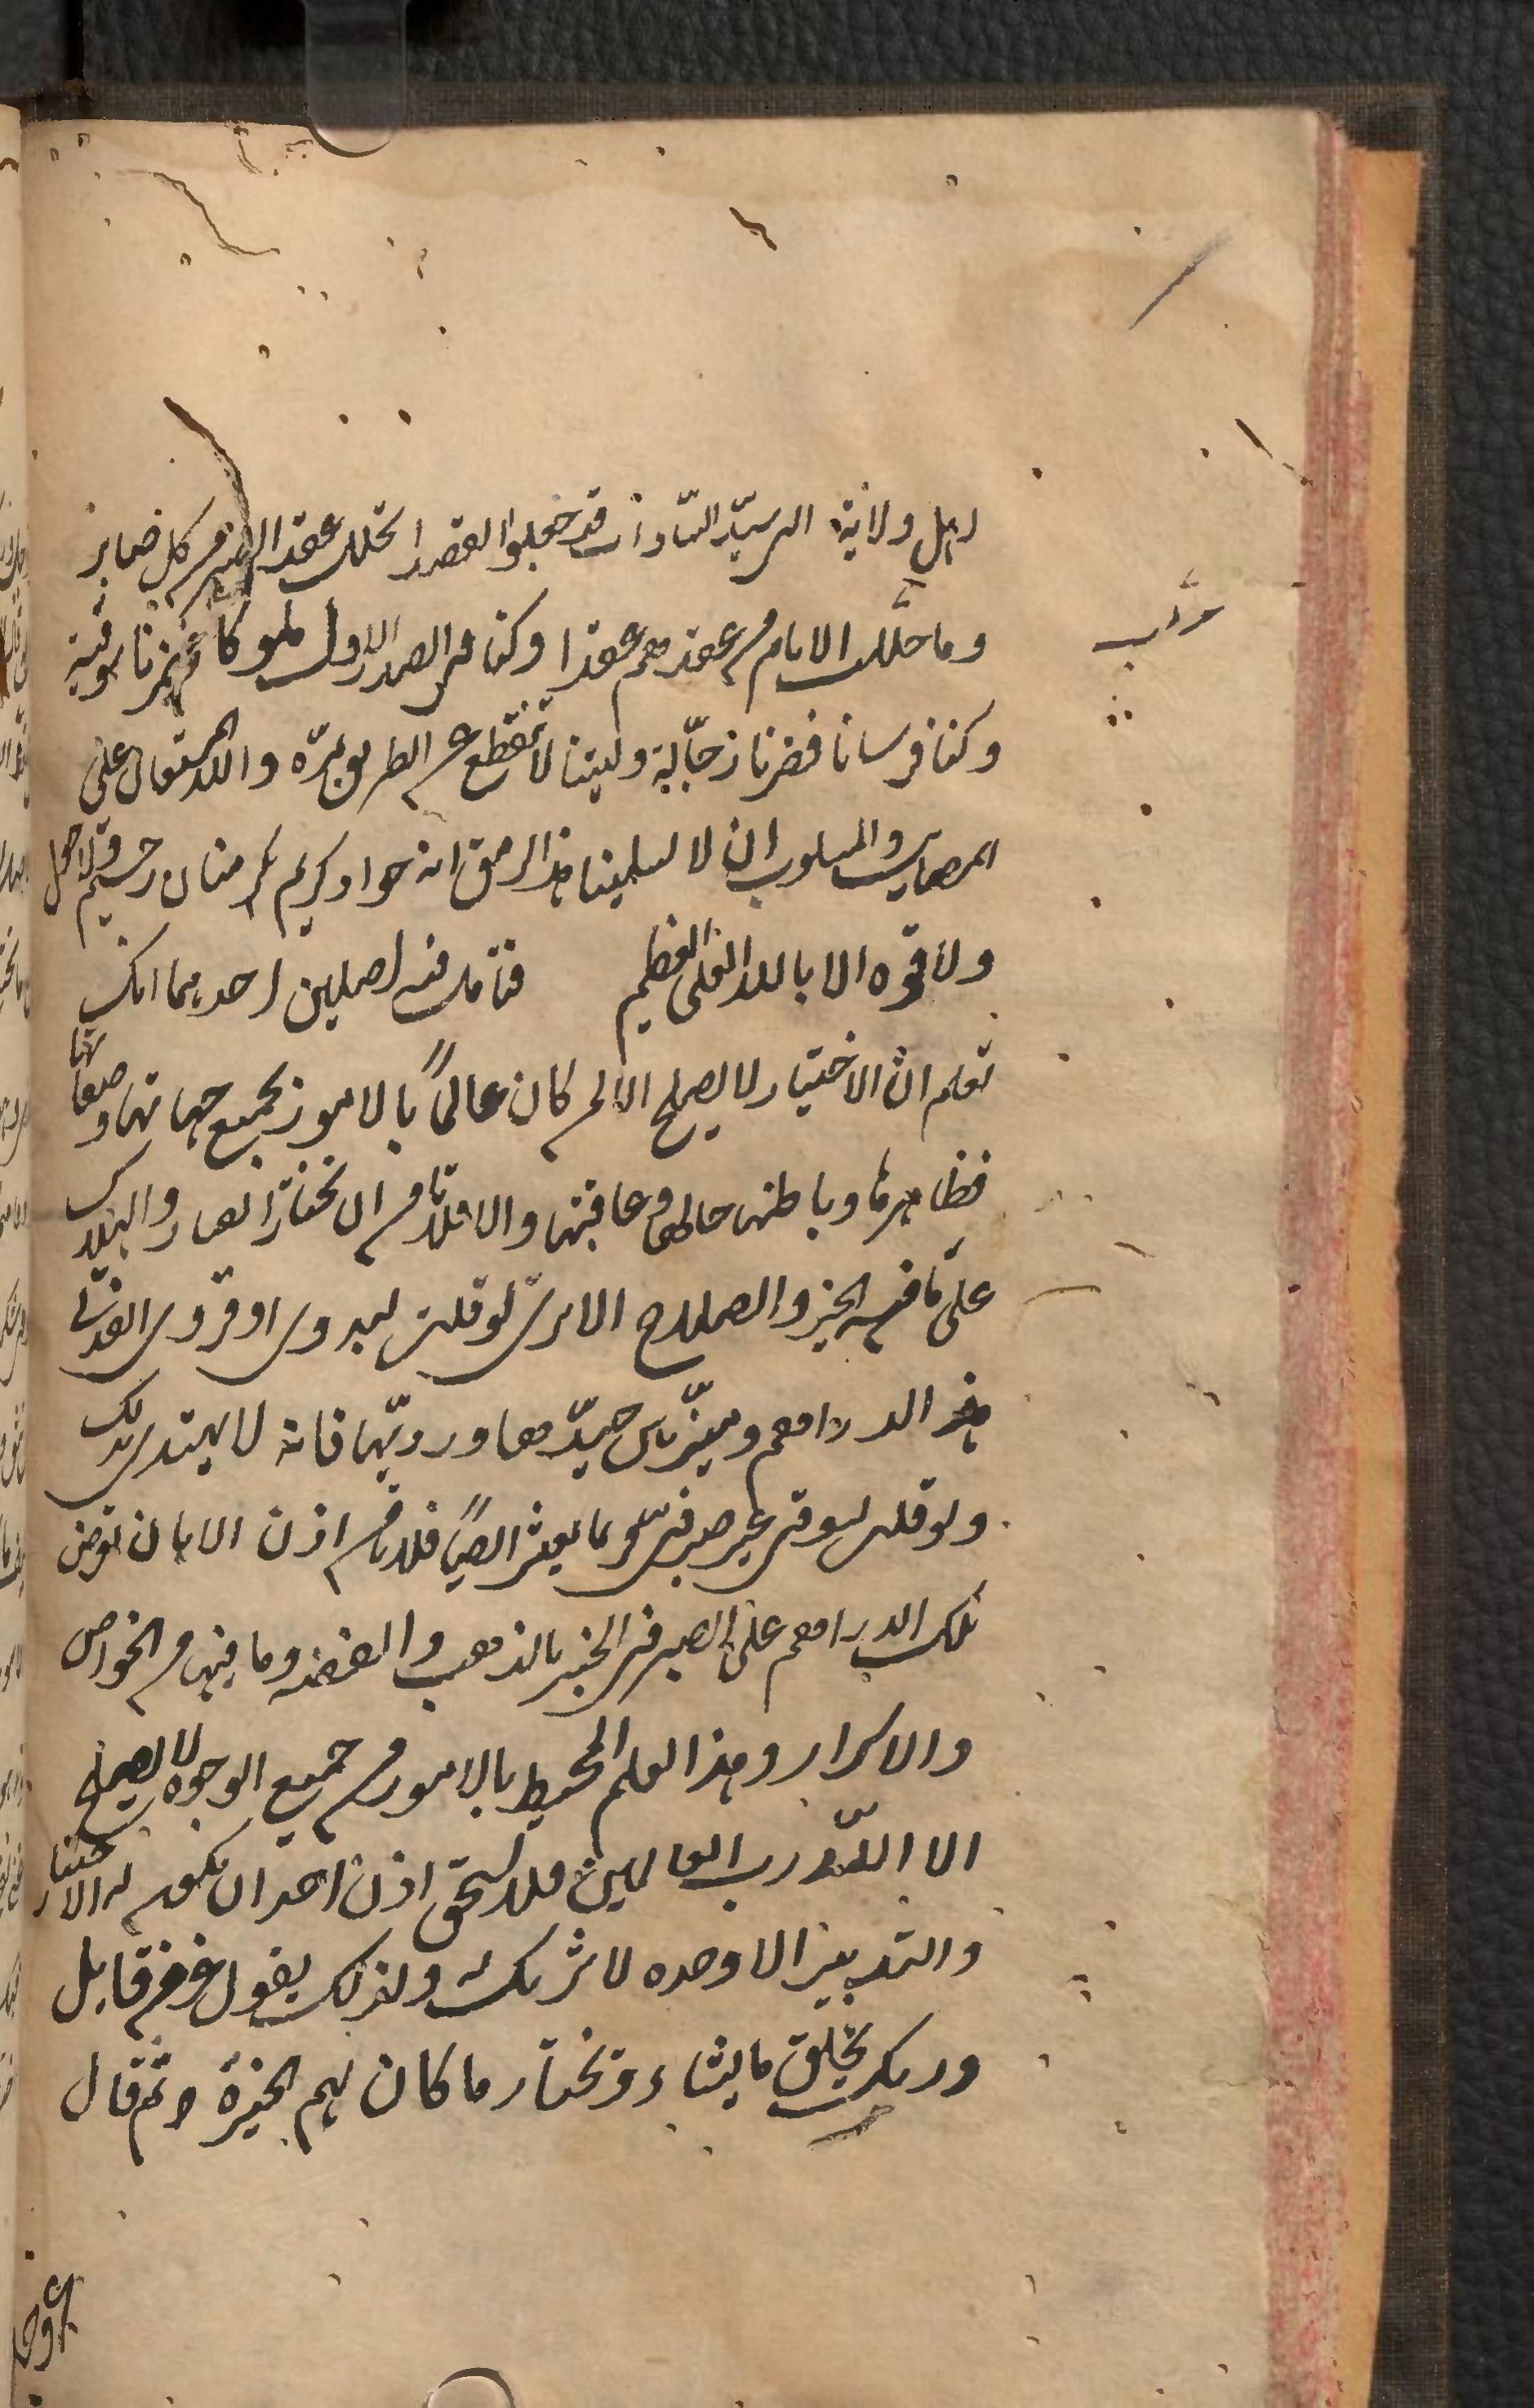 اهل ولاية السيد السادات قد جعلوا القصد تحلك عقد الصبر من كل صابر
وما حللت الايام من عقدهم عقدا وكنا في الصدر الاول ملوكا فصرنا سوقية
وكنا فرسانا فصرنا زجالة وليتنا لا نقطع عن الطريق بمرة والله المستعان على
المصايب والمسلوب ان لا يسلبنا هذا الرمق انه جواد كريم منان رحيم ولا حول
ولا قوة الا بالله العلي العظيم فتأمل فيه اصلين احدهما انك
تعلم ان الاختيار لا يصلح الا لمن كان عالماً بالامور بجميع جهاتها وصفاتها
فظاهرها وباطنها حالها وعاقبتها والا فلا تامن ان تختار الفساد والهلاك
على ما فيه الخير والصلاح الا ترى لو قلت لبدوي او قروي
هذه الدراهم وميز بين جيدها ورديها فانه لا يهتدي لذلك
ولو قلت لسوقي غير صيرفي ربما يعثر ايضاً فلا تامن اذن الا بان تعرض
تلك الدراهم على الصيرفي الخبير بالذهب والفضة وما فيها من الخواص
والاسرار وهذا العلم المحيط بالامور من جميع الوجوه لا يصلح
الا الله رب العالمين فلا يستحق اذن احد ان يكون له الاختيار
والتدبير الا وحده لا شريك له ولذلك يقول عز من قايل
وربك يخلق ما يشاء ويختار ما كان لهم الخيرة ثم قال